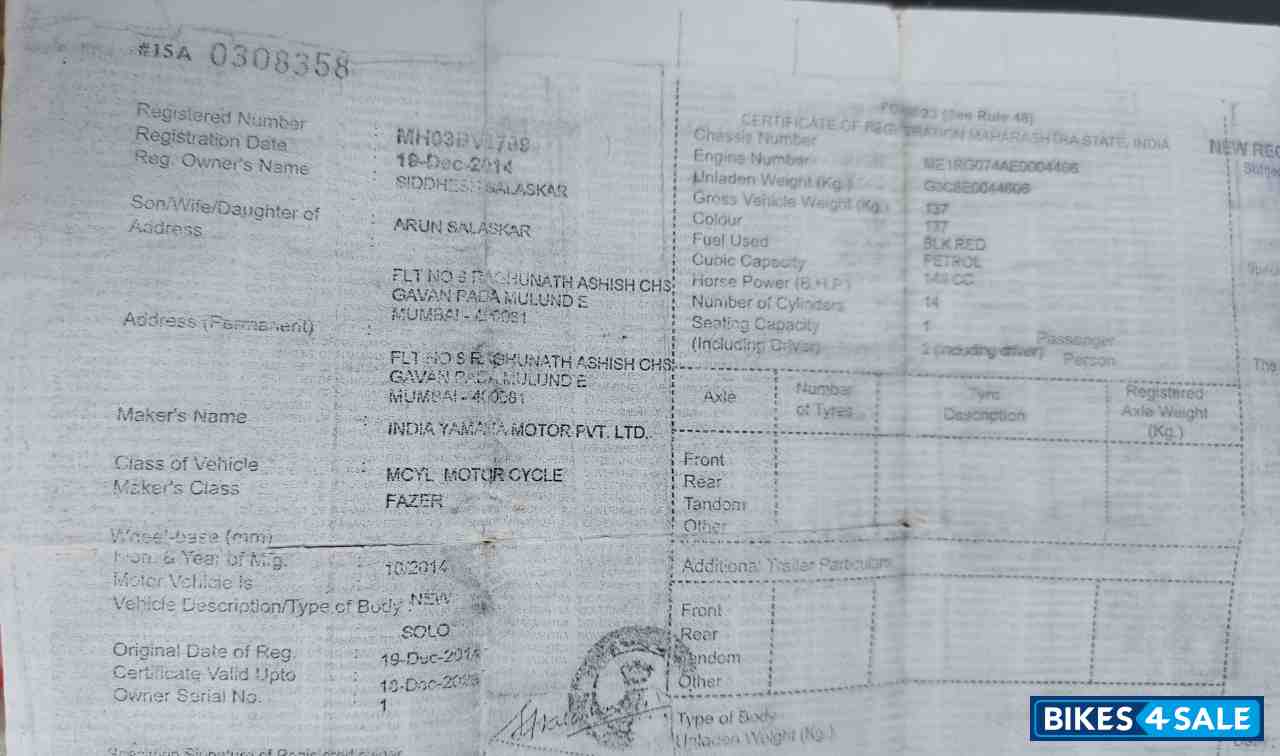 #15A 0308358
Registered Number : MH03BV
Registration Date : -Dec-2014
Reg. Owner's Name : SIDDHESH SALASKAR
Son/Wife/Daughter of : ARUN SALASKAR
Address :
FLT NO ASHISH CHS
GAVAN PADA MULUND E
MUMBAI - 400081
Address (Permanent) :
FLT NO ASHISH CHS
GAVAN PADA MULUND E
MUMBAI - 400081
Maker's Name : INDIA YAMAHA MOTOR PVT. LTD.
Class of Vehicle : MCYL MOTOR CYCLE
Maker's Class FAZER
Wheel-base (mm)
Mon. & Year of Mfg. : 10/2014
Motor Vehicle is : NEW
Vehicle Description/Type of Body :
SOLO
Original Date of Reg. : 19-Dec-2014
Certificate Valid Upto : 18-Dec-
Owner Serial No. : 1
Specimen Signature of Registered owner
(See Rule 48)
CERTIFICATE OF REGISTRATION MAHARASHTRA STATE, INDIA
Chassis Number
Engine Number ME1RG074AE0004406
Unladen Weight (Kg.)
Gross Vehicle Weight (Kg.) 137
Colour 137
Fuel Used BLK RED
Cubic Capacity PETROL
Horse Power (B.H.P) CC
Number of Cylinders 14
Seating Capacity 1 Passenger
(Including Driver) 2 (including driver) Person
Axle Number of Tyres Tyre Description Registered Axle Weight (Kg.)
Front
Rear
Tandom
Other
Additional Trailer Particulars
Front
Rear
Tandom
Other
Type of Body
Unladen Weight (Kg.)
NEW REG
The
BIKES4SALE